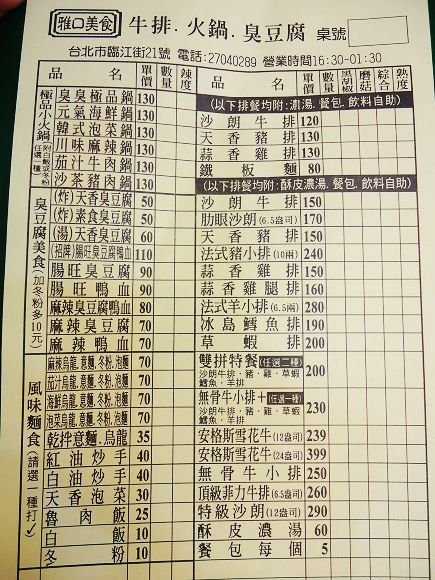 雅口美食 牛排.火鍋.臭豆腐 桌號
台北市臨江街21號 電話:27040289 營業時間16:30-01:30
品名 單價 數量 辣度
極品小火鍋(附白飯或冬粉任選一種)
臭臭極品鍋 130
元氣海鮮鍋 130
韓式泡菜鍋 130
川味麻辣鍋 130
茄汁牛肉鍋 130
沙茶豬肉鍋 130
臭豆腐美食(加冬粉多10元)
(炸)天香臭豆腐 50
(炸)素食臭豆腐 50
(湯)天香臭豆腐 60
(招牌)腸旺臭豆腐鴨血 110
腸旺臭豆腐 90
腸旺鴨血 90
麻辣臭豆腐鴨血 80
麻辣臭豆腐 70
麻辣鴨血 70
風味麵食(請選一種打✓)
麻辣烏龍.意麵.冬粉.泡麵 70
茄汁烏龍.意麵.冬粉.泡麵 70
海鮮烏龍.意麵.冬粉.泡麵 70
泡菜烏龍.意麵.冬粉.泡麵 70
乾拌意麵.烏龍 35
紅油炒手 40
白油炒手 40
天香泡菜 30
魯肉飯 25
白飯 10
冬粉 10
品名 單價 數量 黑胡椒 蘑菇 綜合 熟度
(以下排餐均附:濃湯.餐包.飲料自助)
沙朗牛排 120
天香豬排 130
蒜香雞排 130
鐵板麵 80
(以下排餐均附:酥皮濃湯.餐包.飲料自助)
沙朗牛排 150
肋眼沙朗(6.5盎司) 170
天香豬排 150
法式豬小排(10兩) 240
蒜香雞排 150
蒜香雞腿排 160
法式羊小排(6.5兩) 280
冰島鱈魚排 190
草蝦排 200
雙拼特餐(任選二種) 200
沙朗牛排.豬.雞.草蝦
鱈魚.羊排
無骨牛小排+(任選一種) 230
沙朗牛排.豬.雞.草蝦
鱈魚.羊排
安格斯雪花牛(12盎司) 239
安格斯雪花牛(24盎司) 399
無骨牛小排 250
頂級菲力牛排(6.5盎司) 260
特級沙朗(12盎司) 290
酥皮濃湯 60
餐包每個 5